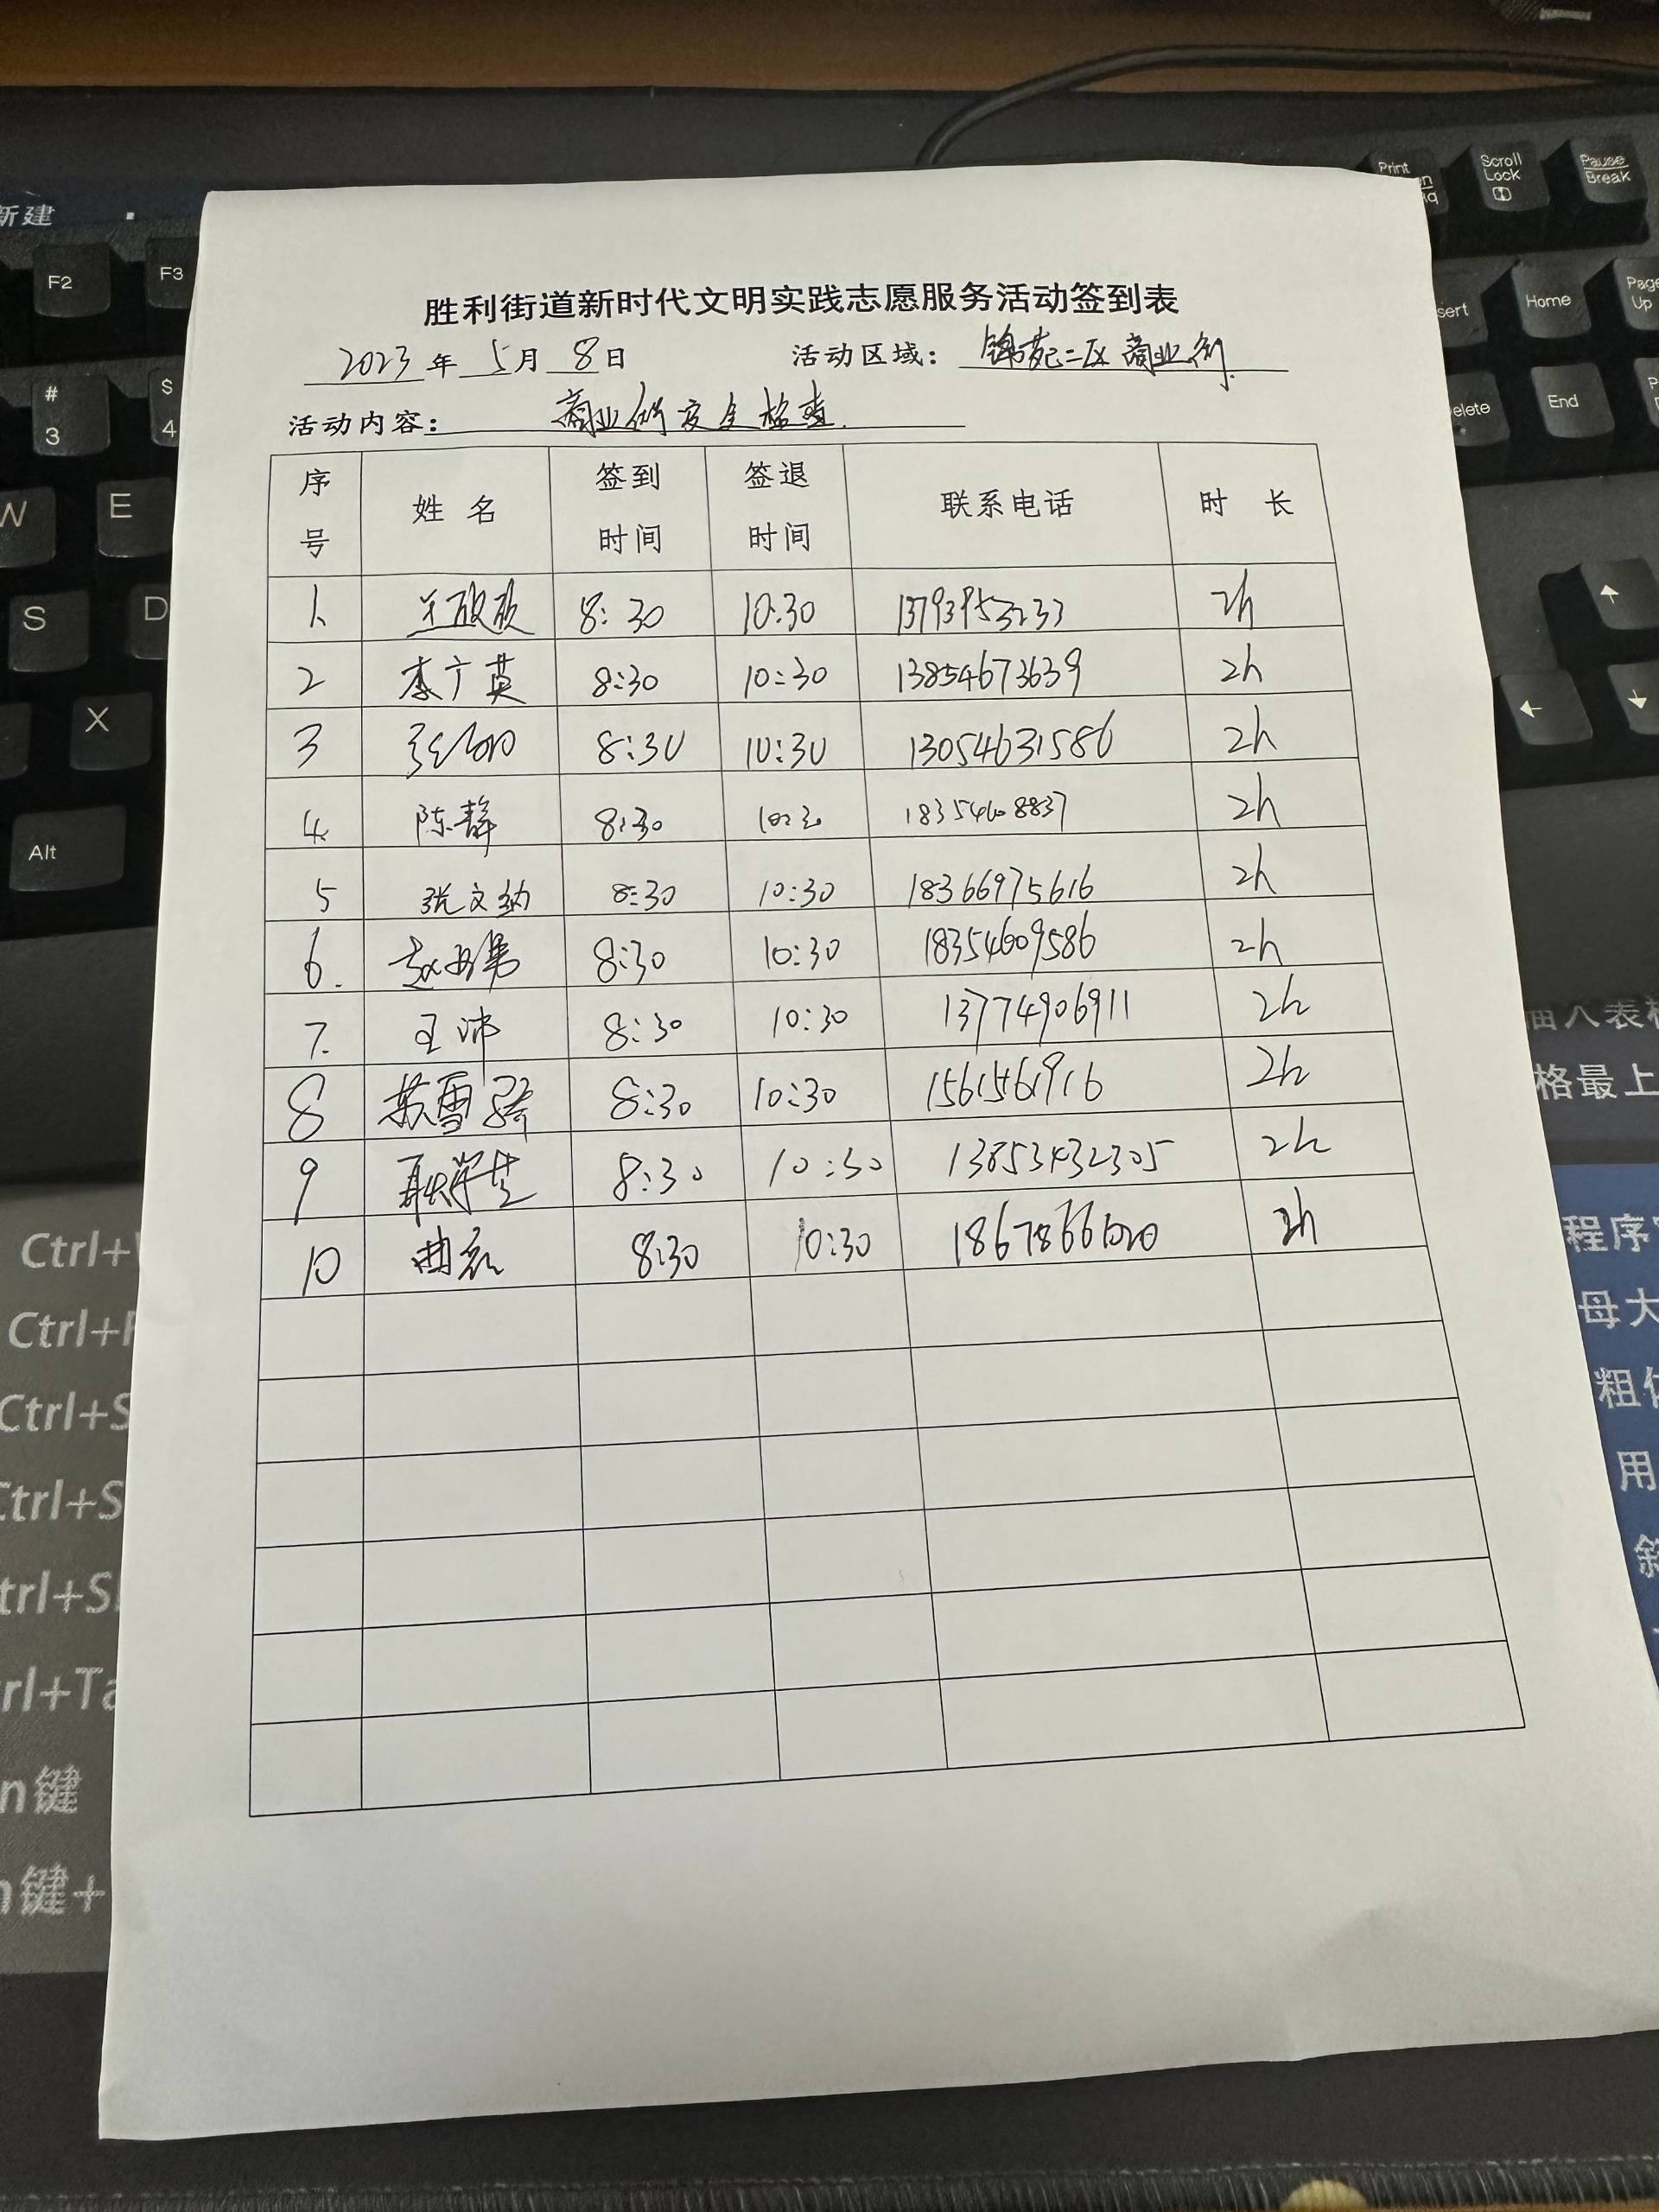 新建
F2
F3
Print
Scroll Lock
Pause Break
# 3
$ 4
Home
Page Up
End
W
E
S
D
X
Alt
胜利街道新时代文明实践志愿服务活动签到表
2023 年 5 月 8 日 活动区域: 锦苑二区商业街.
活动内容: 商业街安全检查.
序号 姓名 签到时间 签退时间 联系电话 时长
1. 8:30 10:30 13793953233 2h
2 李广英 8:30 10:30 13854673639 2h
3 8:30 10:30 13054631586 2h
4. 陈静 8:30 10:30 18354608837 2h
5 张文纳 8:30 10:30 18366975616 2h
6. 赵 男 8:30 10:30 18354609586 2h
7. 王沛 8:30 10:30 13774906911 2h
8 苏雪琦 8:30 10:30 1561561916 2h
9 耿学芝 8:30 10:30 2h
10 曲 8:30 10:30 2h
Ctrl+
Ctrl+
Ctrl+S
Ctrl+S
格最上
程序
母大
用
键
键+